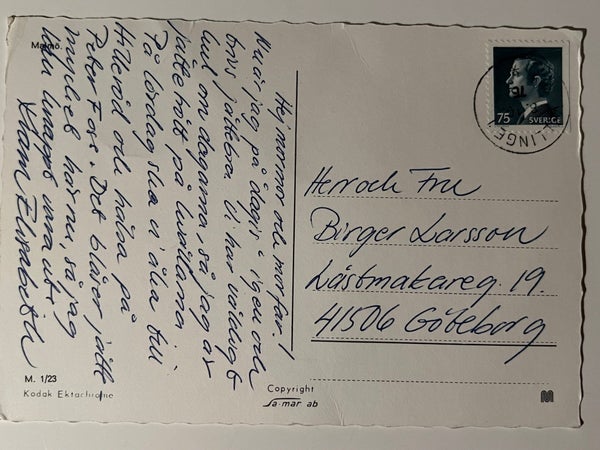 Malmö.
Hej mormor och morfar!
Nu är jag på dagis igen och
trivs jättebra. Vi har väldigt
kul om dagarna, så jag är
jätte trött på kvällarna
På lördag ska vi åka till
Hilleröd och hälsa på
Peter Fars. Det blåser jätte
mycket här nu, så jag
kan knappt vara ute
Kram Elisabeth
M. 1/23
Kodak Ektachrome
Copyright
Sa-mar ab
75 SVERIGE
Herr och Fru
Birger Larsson
Låstmakareg. 19
41506 Göteborg
M